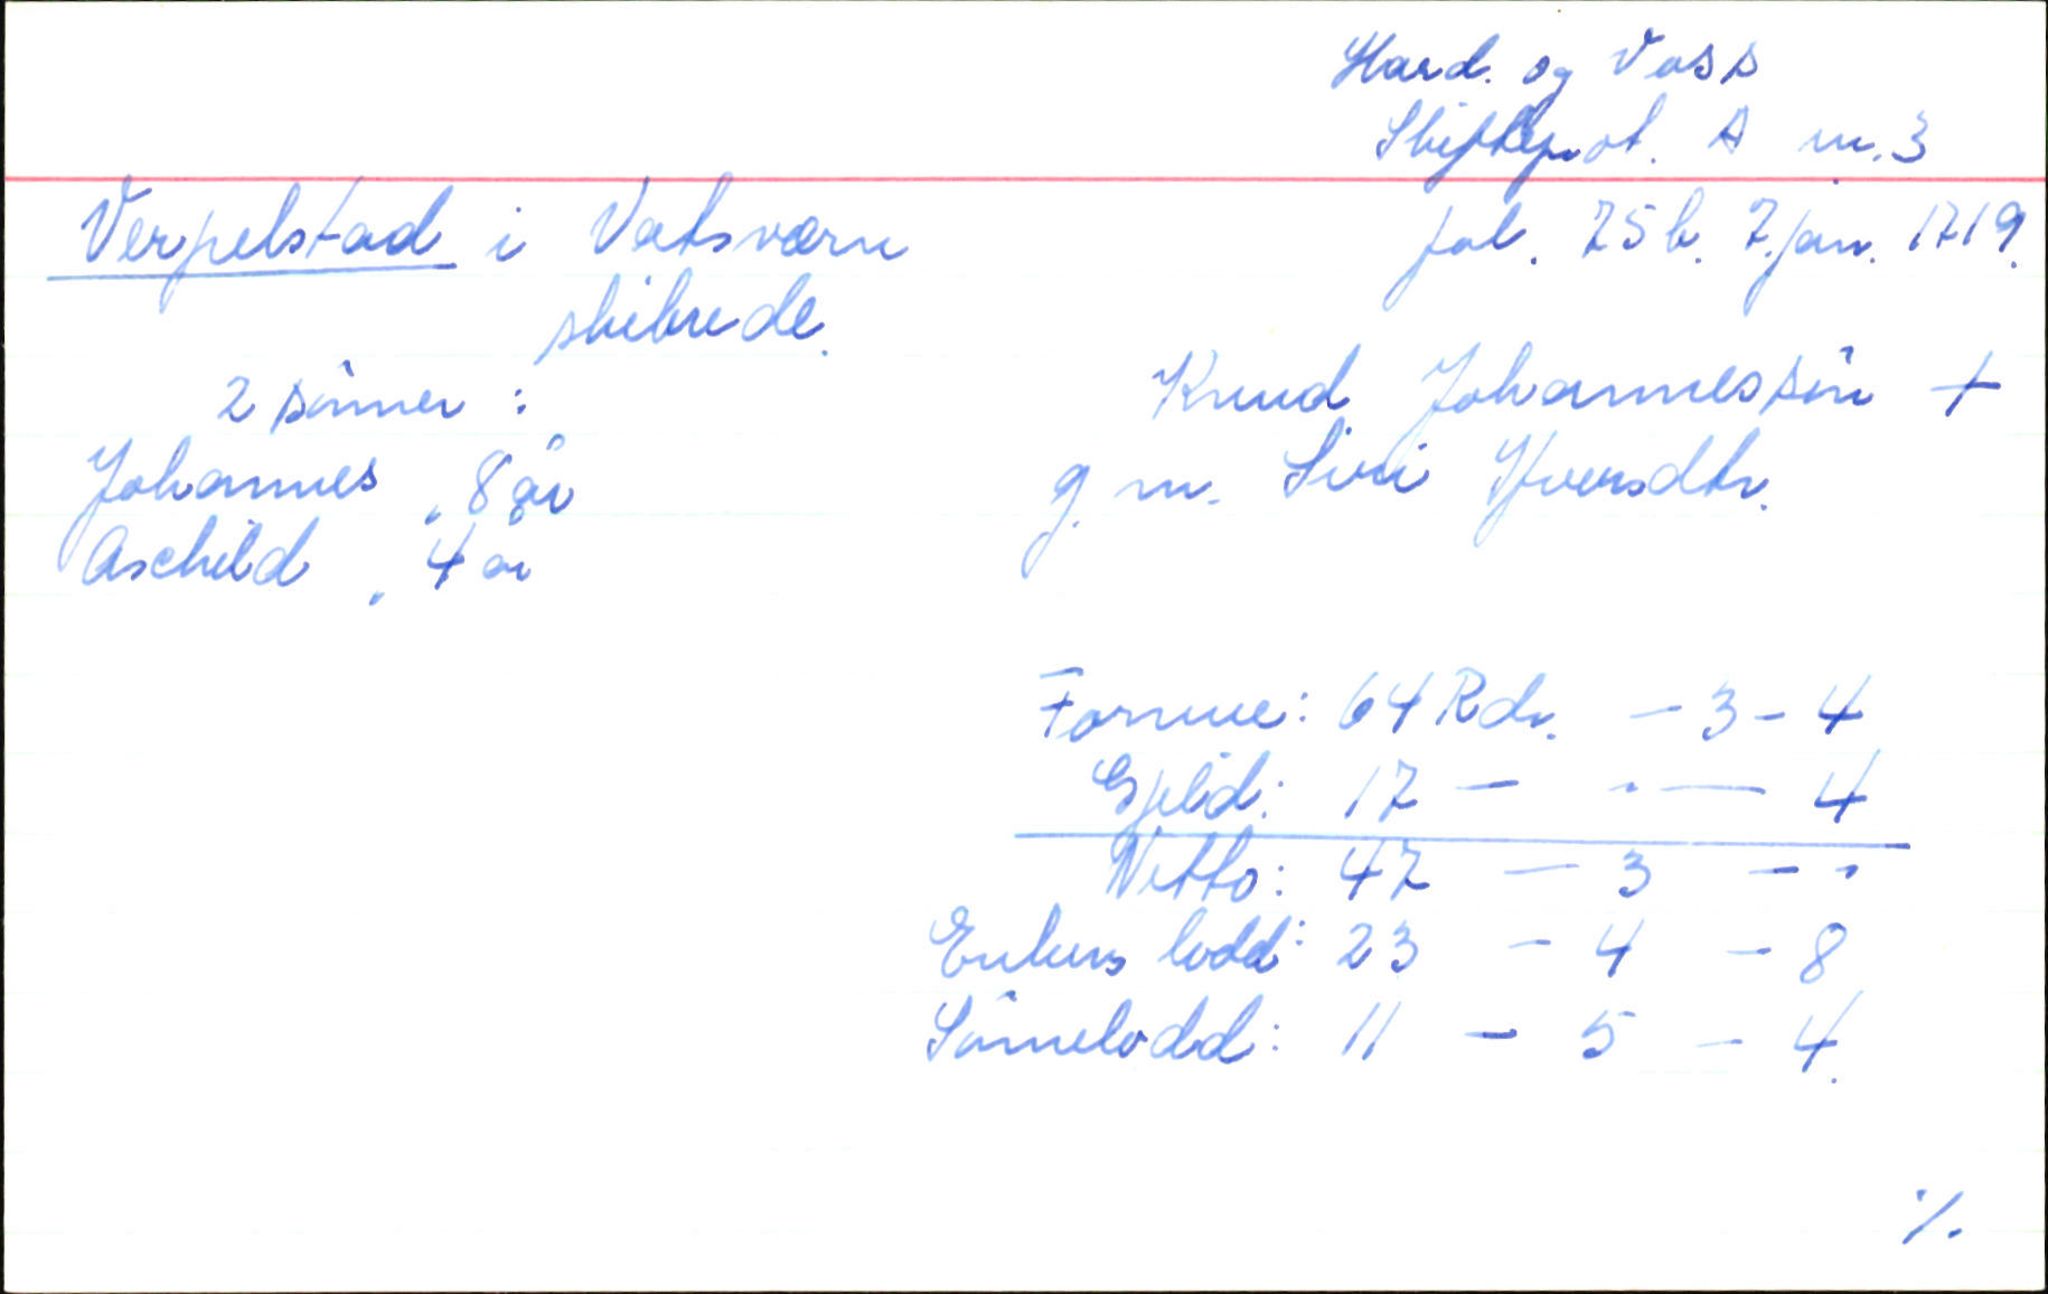 Hard. og Voss
Skifteprot. A nr. 3
fol. 75 b. 7. jan. 1719.
Verpelstad i Vatsværn
skibrede.
2 sønner :
Johannes, 8 år
Aschild, 4 år
Knud Johannessøn +
g. m. Siri Yversdtr.
Formue: 64 Rdr. - 3 - 4
Gjeld: 17 - " - 4
Netto: 47 - 3 - "
Enkens lodd: 23 - 4 - 8
Sønnelodd: 11 - 5 - 4.
%